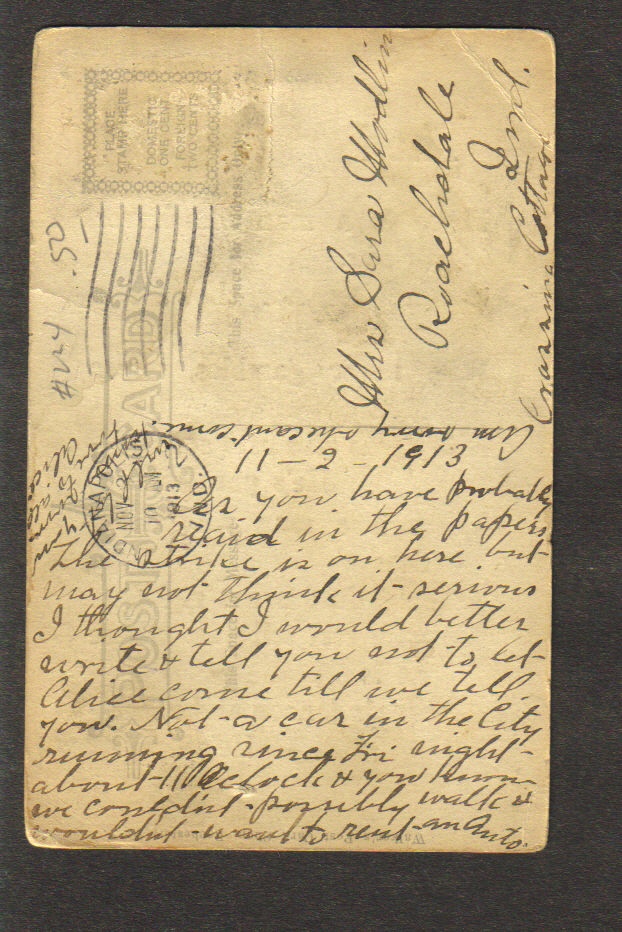 PLACE
STAMP HERE
DOMESTIC
ONE CENT
FOREIGN
TWO CENTS
This Space for Address Only
POST CARD
INDIANAPOLIS
NOV 2
1913
IND.
.50
Mrs Sara Modlin
Roachdale
Ind.
Crossing Cottage
11-2-1913
As you have probably
read in the papers
The strike is on here but
may not think it serious
I thought I would better
write & tell you not to let
Alice come till we tell
you. Not a car in the City
running since Fri night
about 11 Oclock & you know
we couldn't possibly walk &
wouldn't want to rent an Auto.
Am sorry she cant come.